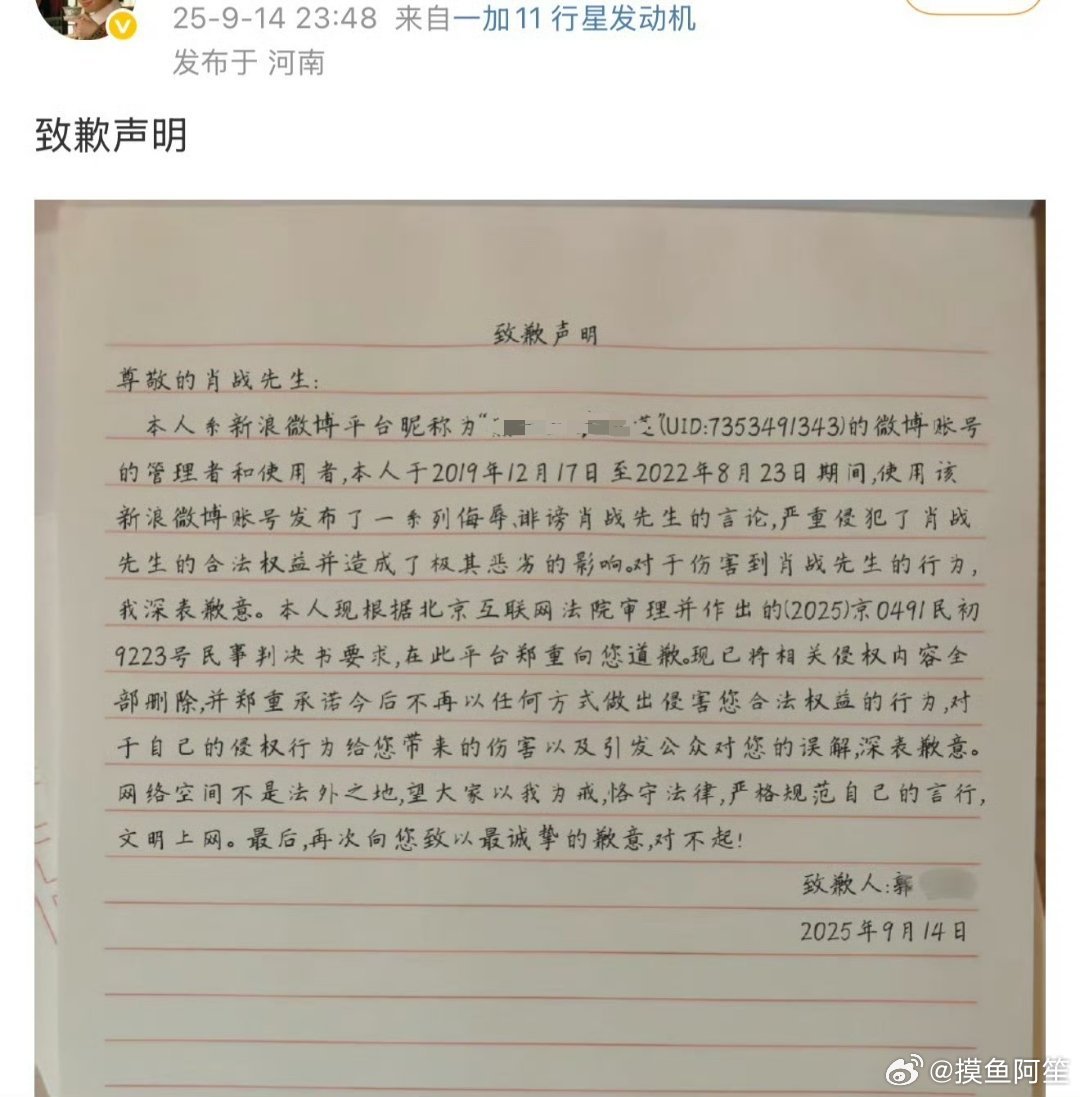 25-9-14 23:48 来自一加11 行星发动机
发布于 河南
致歉声明
致歉声明
尊敬的肖战先生:
本人系新浪微博平台昵称为“ ”(UID:7353491343)的微博账号
的管理者和使用者,本人于2019年12月17日至2022年8月23日期间,使用该
新浪微博账号发布了一系列侮辱、诽谤肖战先生的言论,严重侵犯了肖战
先生的合法权益并造成了极其恶劣的影响。对于伤害到肖战先生的行为,
我深表歉意。本人现根据北京互联网法院审理并作出的(2025)京0491民初
9223号民事判决书要求,在此平台郑重向您道歉。现已将相关侵权内容全
部删除,并郑重承诺今后不再以任何方式做出侵害您合法权益的行为,对
于自己的侵权行为给您带来的伤害以及引发公众对您的误解,深表歉意。
网络空间不是法外之地,望大家以我为戒,恪守法律,严格规范自己的言行,
文明上网。最后,再次向您致以最诚挚的歉意,对不起!
致歉人:郭
2025年9月14日
@摸鱼阿笙